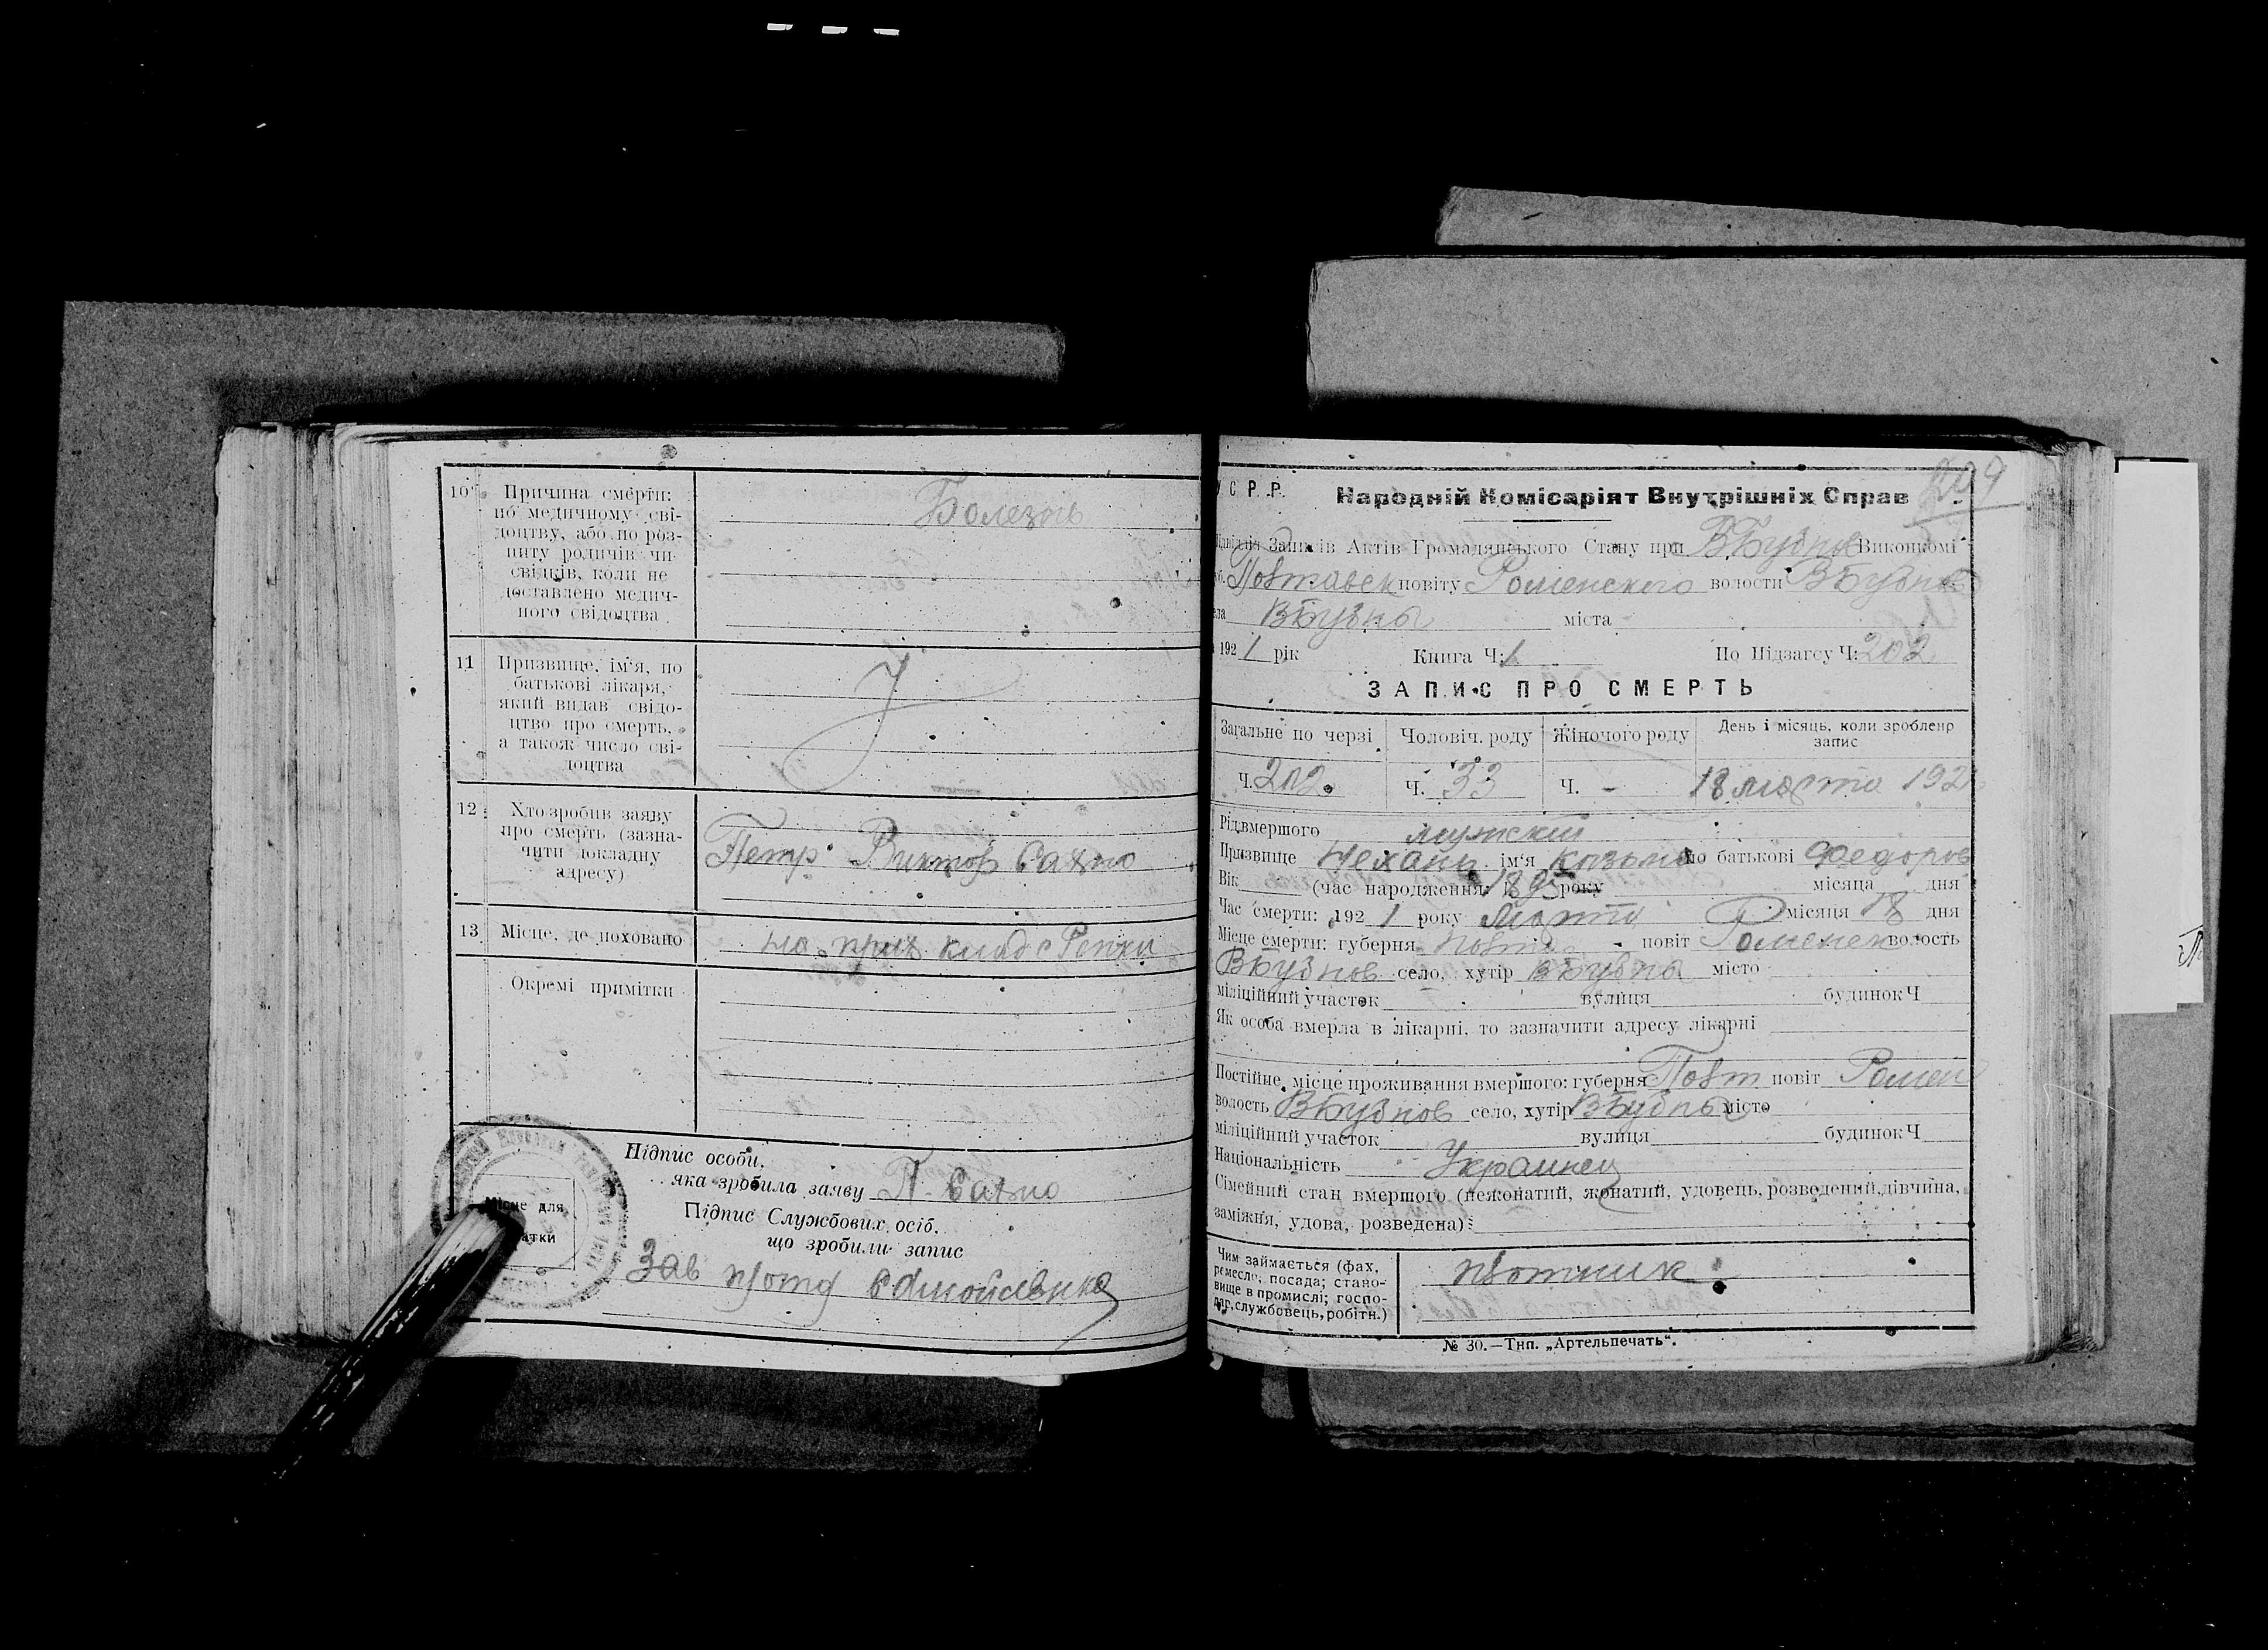 10
Причина смерти:
по медичному сві-
доцтву, або по роз-
питу родичів чи
свідків, коли не
доставлено медич-
ного свідоцтва
Болезнь
11
Призвище, ім'я, по
батькові лікаря,
який видав свідо-
цтво про смерть,
а також число сві-
доцтва
12
Хто зробив заяву
про смерть (зазна-
чити докладну
адресу)
Петр Виктор Сахно
13
Місце, де поховано
на прих кладб с Репки
Окремі примітки
Підпис особи,
яка зробила заяву П. Сахно
Місце для
Підпис Службових осіб,
що зробили запис
Зав Самойленко
209
У С Р. Р.
Народній Комісаріят Внутрішніх Справ
Підвідділ Записів Актів Громадянського Стану при ВБубнов Виконкомі
Полтавск повіту Роменского волости ВБубнов
села ВБубны міста
1921 рік Книга Ч. 1 По Підзагсу Ч: 202
ЗАПИС ПРО СМЕРТЬ
Загальне по черзі Чоловіч. роду Жіночого роду День і місяць, коли зроблено запис
Ч. 202 Ч. 33 Ч. - 18 марта 192
Рід вмершого мужский
Призвище ім'я Козьма по батькові Федоров
Вік (час народження: 1895 року місяця дня
Час смерти: 1921 року Марта місяця 18 дня
Місце смерти: губерня Полт повіт Роменск волость
ВБубнов село, хутір ВБубны місто
міліційний участок вулиця будинок Ч
Як особа вмерла в лікарні, то зазначити адресу лікарні
Постійне місце проживання вмершого: губерня Полт повіт Ромен
волость ВБубнов село, хутір ВБубны місто
міліційний участок вулиця будинок Ч
Національність Украинец
Сімейний стан вмершого (нежонатий, жонатий, удовець, розведений, дівчина,
заміжня, удова, розведена):
Чим займається (фах,
ремесло, посада; стано-
вище в промислі; госпо-
дар, службовець, робітн.)
плотник
№ 30.—Тип. „Артельпечать".